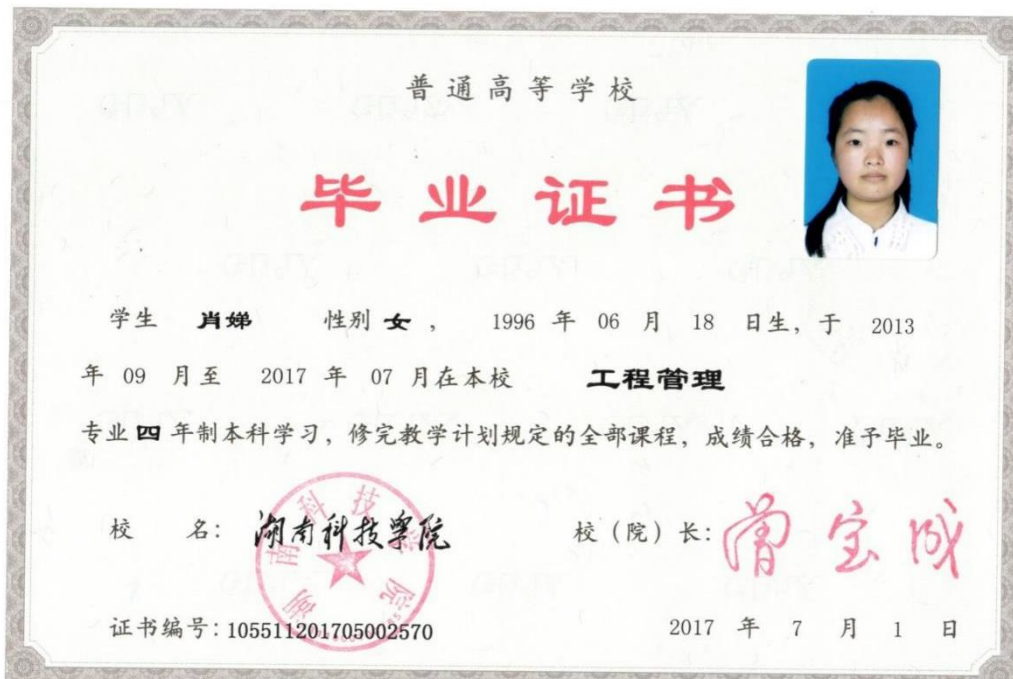 普通高等学校
毕业证书
学生 肖娣 性别 女 ， 1996 年 06 月 18 日生，于 2013
年 09 月至 2017 年 07 月在本校 工程管理
专业 四 年制本科学习，修完教学计划规定的全部课程，成绩合格，准予毕业。
校 名： 湖南科技学院
湖南科技学院
校（院）长： 曾宝成
证书编号：105511201705002570
2017 年 7 月 1 日